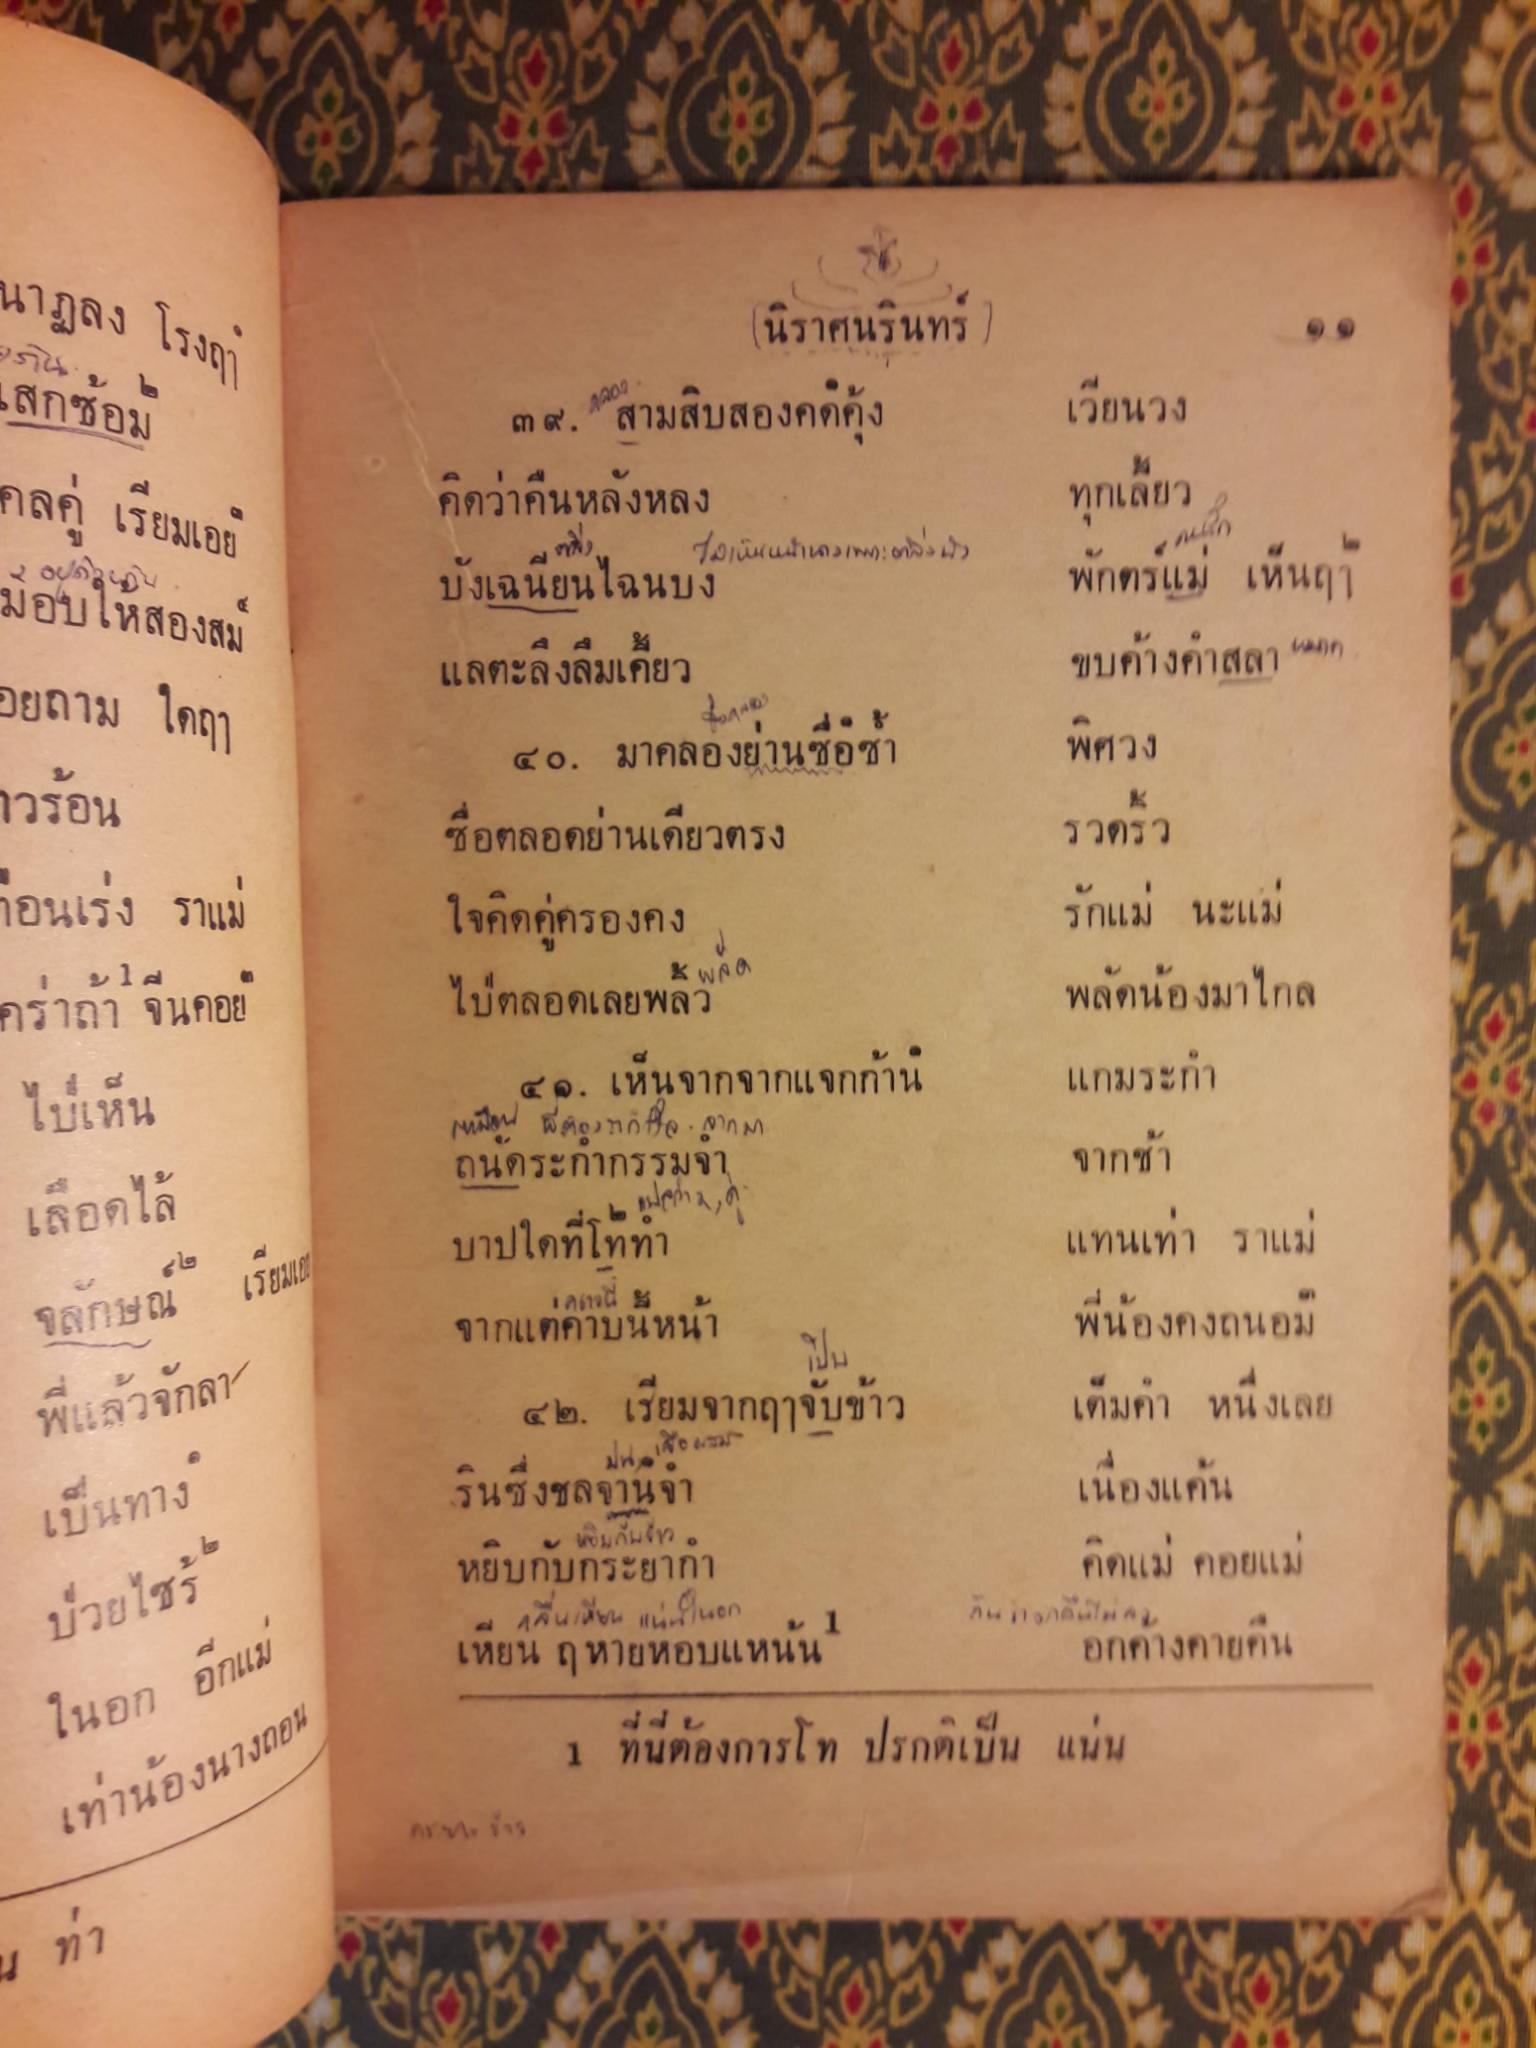 นาฏลง โรงฤๅ
เสกซ้อม๒
คลคู่ เรียมเอย
อบให้สองสม
อยถาม ใดฤๅ
าวร้อน
อนเร่ง ราแม่
คร่าถ้า1 จีนคอย
ไป่เห็น
เลือดไล้
จลักษณ์๒ เรียมเอย
พี่แล้วจักลา
เป็นทาง
ป่วยไซร้๒
ในอก อีกแม่
เท่าน้องนางถอน
น ท่า
(นิราศนรินทร์) ๑๑
๓๙. คลอง สามสิบสองคดคุ้ง เวียนวง
คิดว่าคืนหลังหลง ทุกเลี้ยว
ตลิ่ง
บังเฉนียนไฉนบง พักตร์แม่ เห็นฤๅ
แลตะลึงลืมเคี้ยว ขบค้างคำสลา หมาก
๔๐. มาคลองย่านซื่อซ้ำ พิศวง
ซื่อตลอดย่านเดียวตรง รวดริ้ว
ใจคิดคู่ครองคง รักแม่ นะแม่
ไป่ตลอดเลยพลิ้ว พลัด พลัดน้องมาไกล
๔๑. เห็นจากจากแจกก้าน แกมระกำ
เหมือน
ถนัดระกำกรรมจำ จากช้า
บาปใดที่โท๒ทำ แทนเท่า ราแม่
คราวนี้
จากแต่คาบนี้หน้า พี่น้องคงถนอม
เปิบ
๔๒. เรียมจากฤๅจับข้าว เต็มคำ หนึ่งเลย
รินซึ่งชลจานจำ เนื่องแค้น
หยิบกับกระยากำ คิดแม่ คอยแม่
กลื่นเหียน แน่นในอก
เหียน ฤ หายหอบแหน้น1 อกค้างคายคืน
1 ที่นี่ต้องการโท ปรกติเป็น แน่น